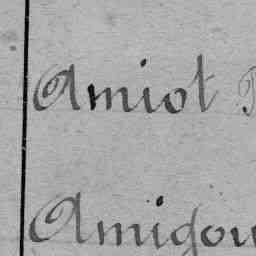 Amiot
Amigou